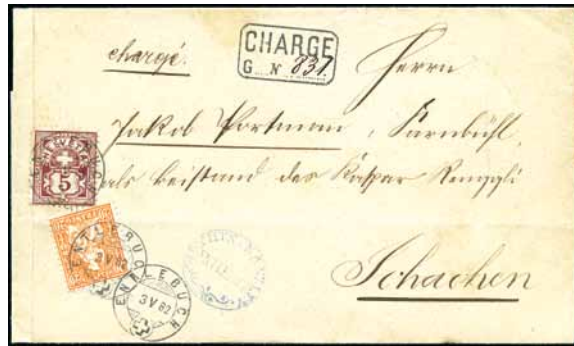 CHARGE
G N° 837
chargé.
Herrn
Jakob Portman, Farnbühl,
als Beistand des Kaspar Renggli
Schachen
HELVETIA
5
ENTLEBUCH
3 V 82
ENTLEBUCH
3 V 82